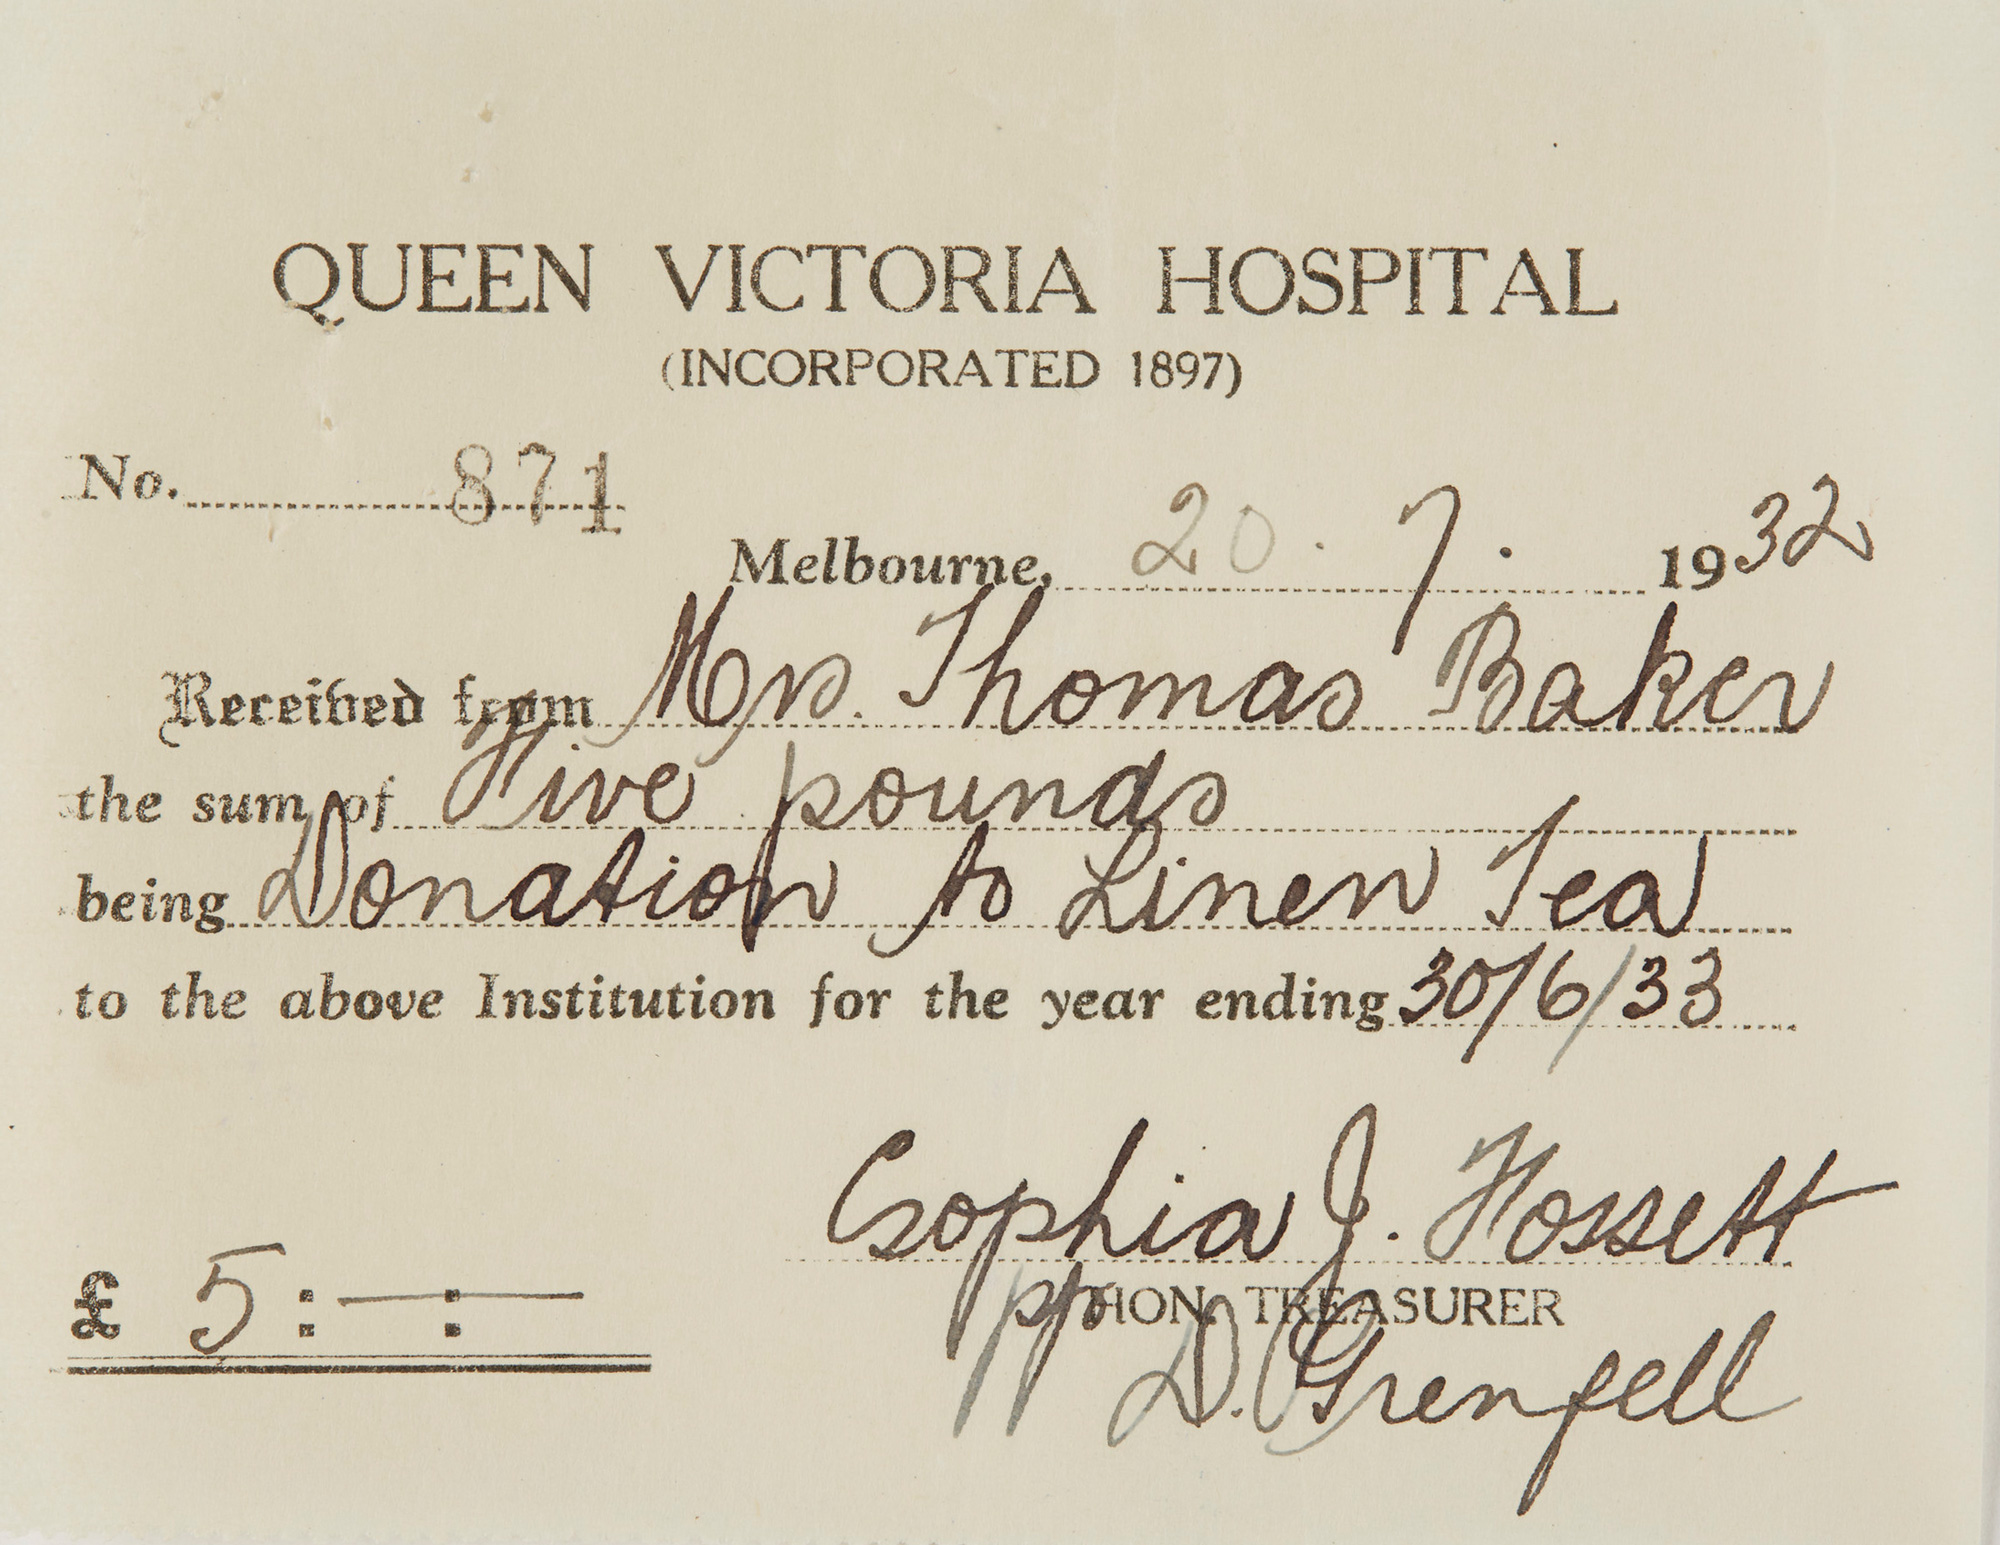 QUEEN VICTORIA HOSPITAL
(INCORPORATED 1897)
No. 871
Melbourne, 20. 7. 1932
Received from Mrs. Thomas Baker
the sum of Five pounds
being Donation to Linen Tea
to the above Institution for the year ending 30/6/33
Sophia J. Fossett
£ 5:—:— pp HON. TREASURER
D. Grenfell